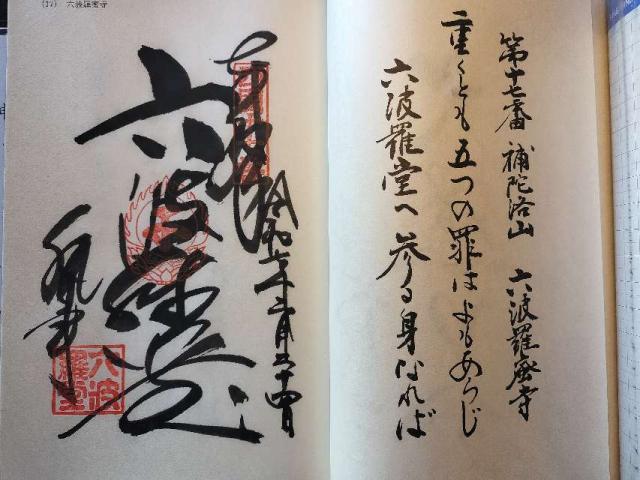 第十七番 補陀洛山 六波羅蜜寺
重くとも五つの罪はよもあらじ
六波羅堂へ参る身なれば
(17) 六波羅蜜寺
奉拝
令和六年二月二十四日
六波羅堂
六波
羅堂